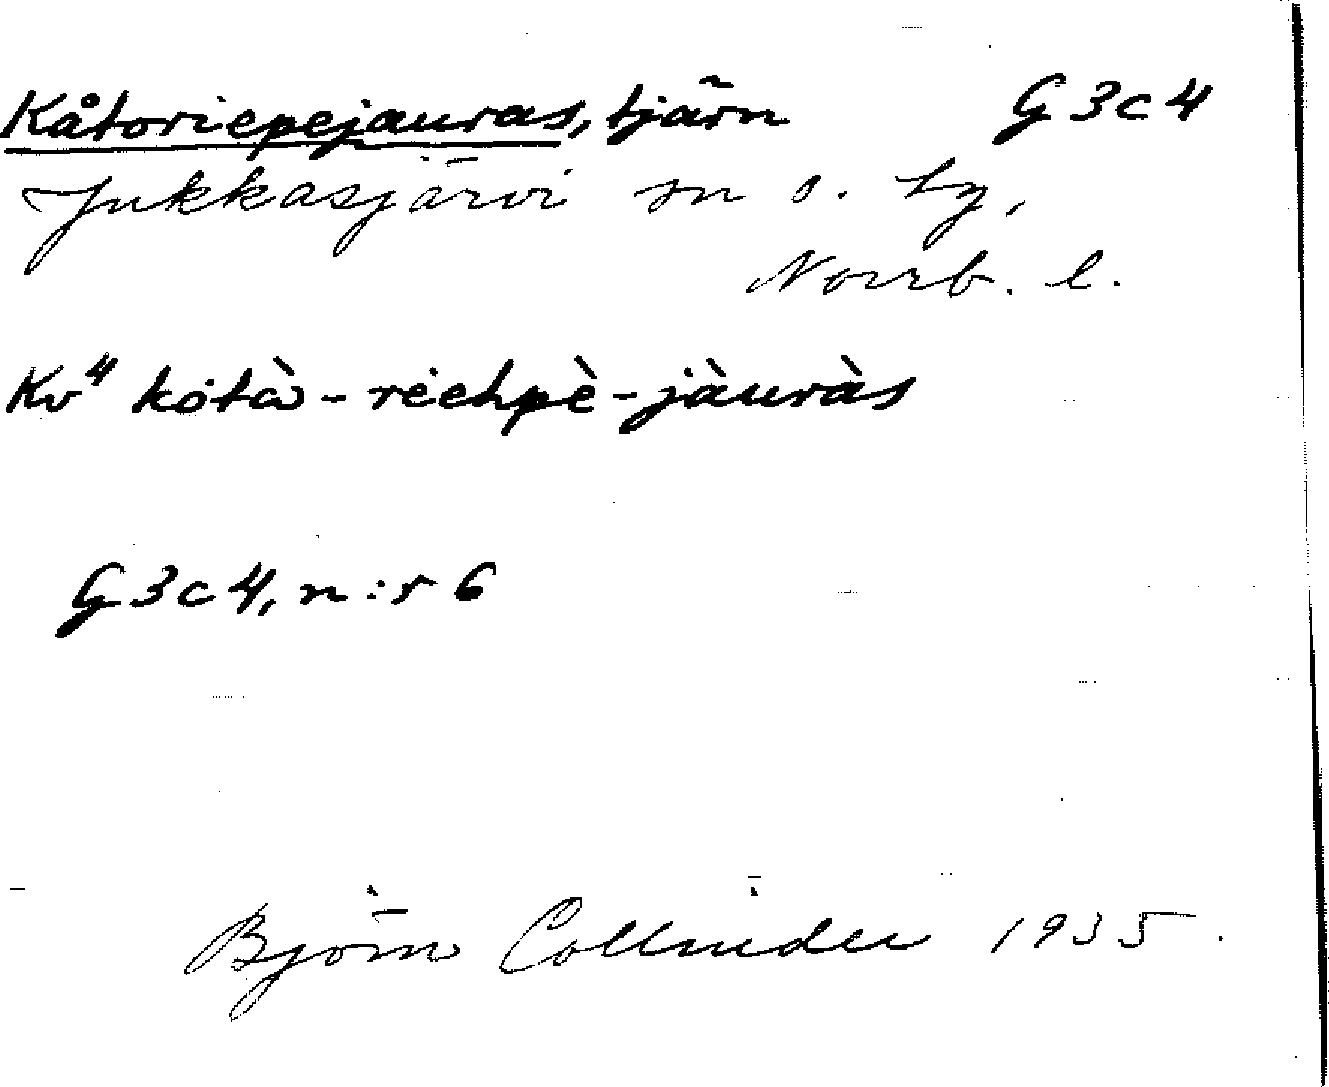 Kåtoriepejauras, tjärn G3c4
Jukkasjärvi sn o. tg,
Norrb. l.
Kv⁴ kȯtὰ-rėehpὲ-jὰurὰs
G3c4, n:r 6
Björn Collinder 1935.